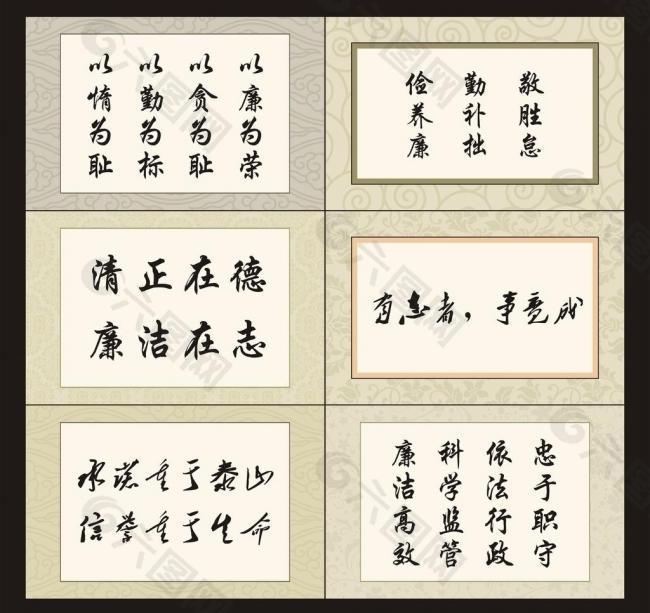 以廉为荣
以贪为耻
以勤为标
以惰为耻
敬胜怠
勤补拙
俭养廉
清正在德
廉洁在志
有志者，事竟成
承诺重于泰山
信誉重于生命
忠于职守
依法行政
科学监管
廉洁高效
六图网